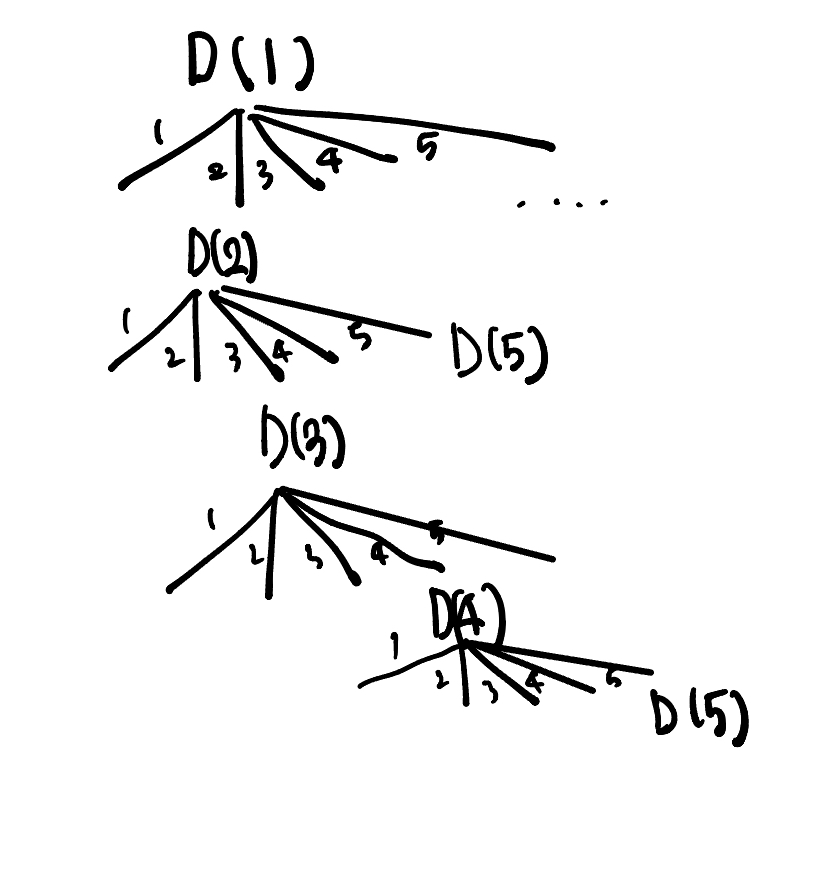 D(1)
1 2 3 4 5
....
D(2)
1 2 3 4 5 D(5)
D(3)
1 2 3 4 5
D(4)
1 2 3 4 5 D(5)